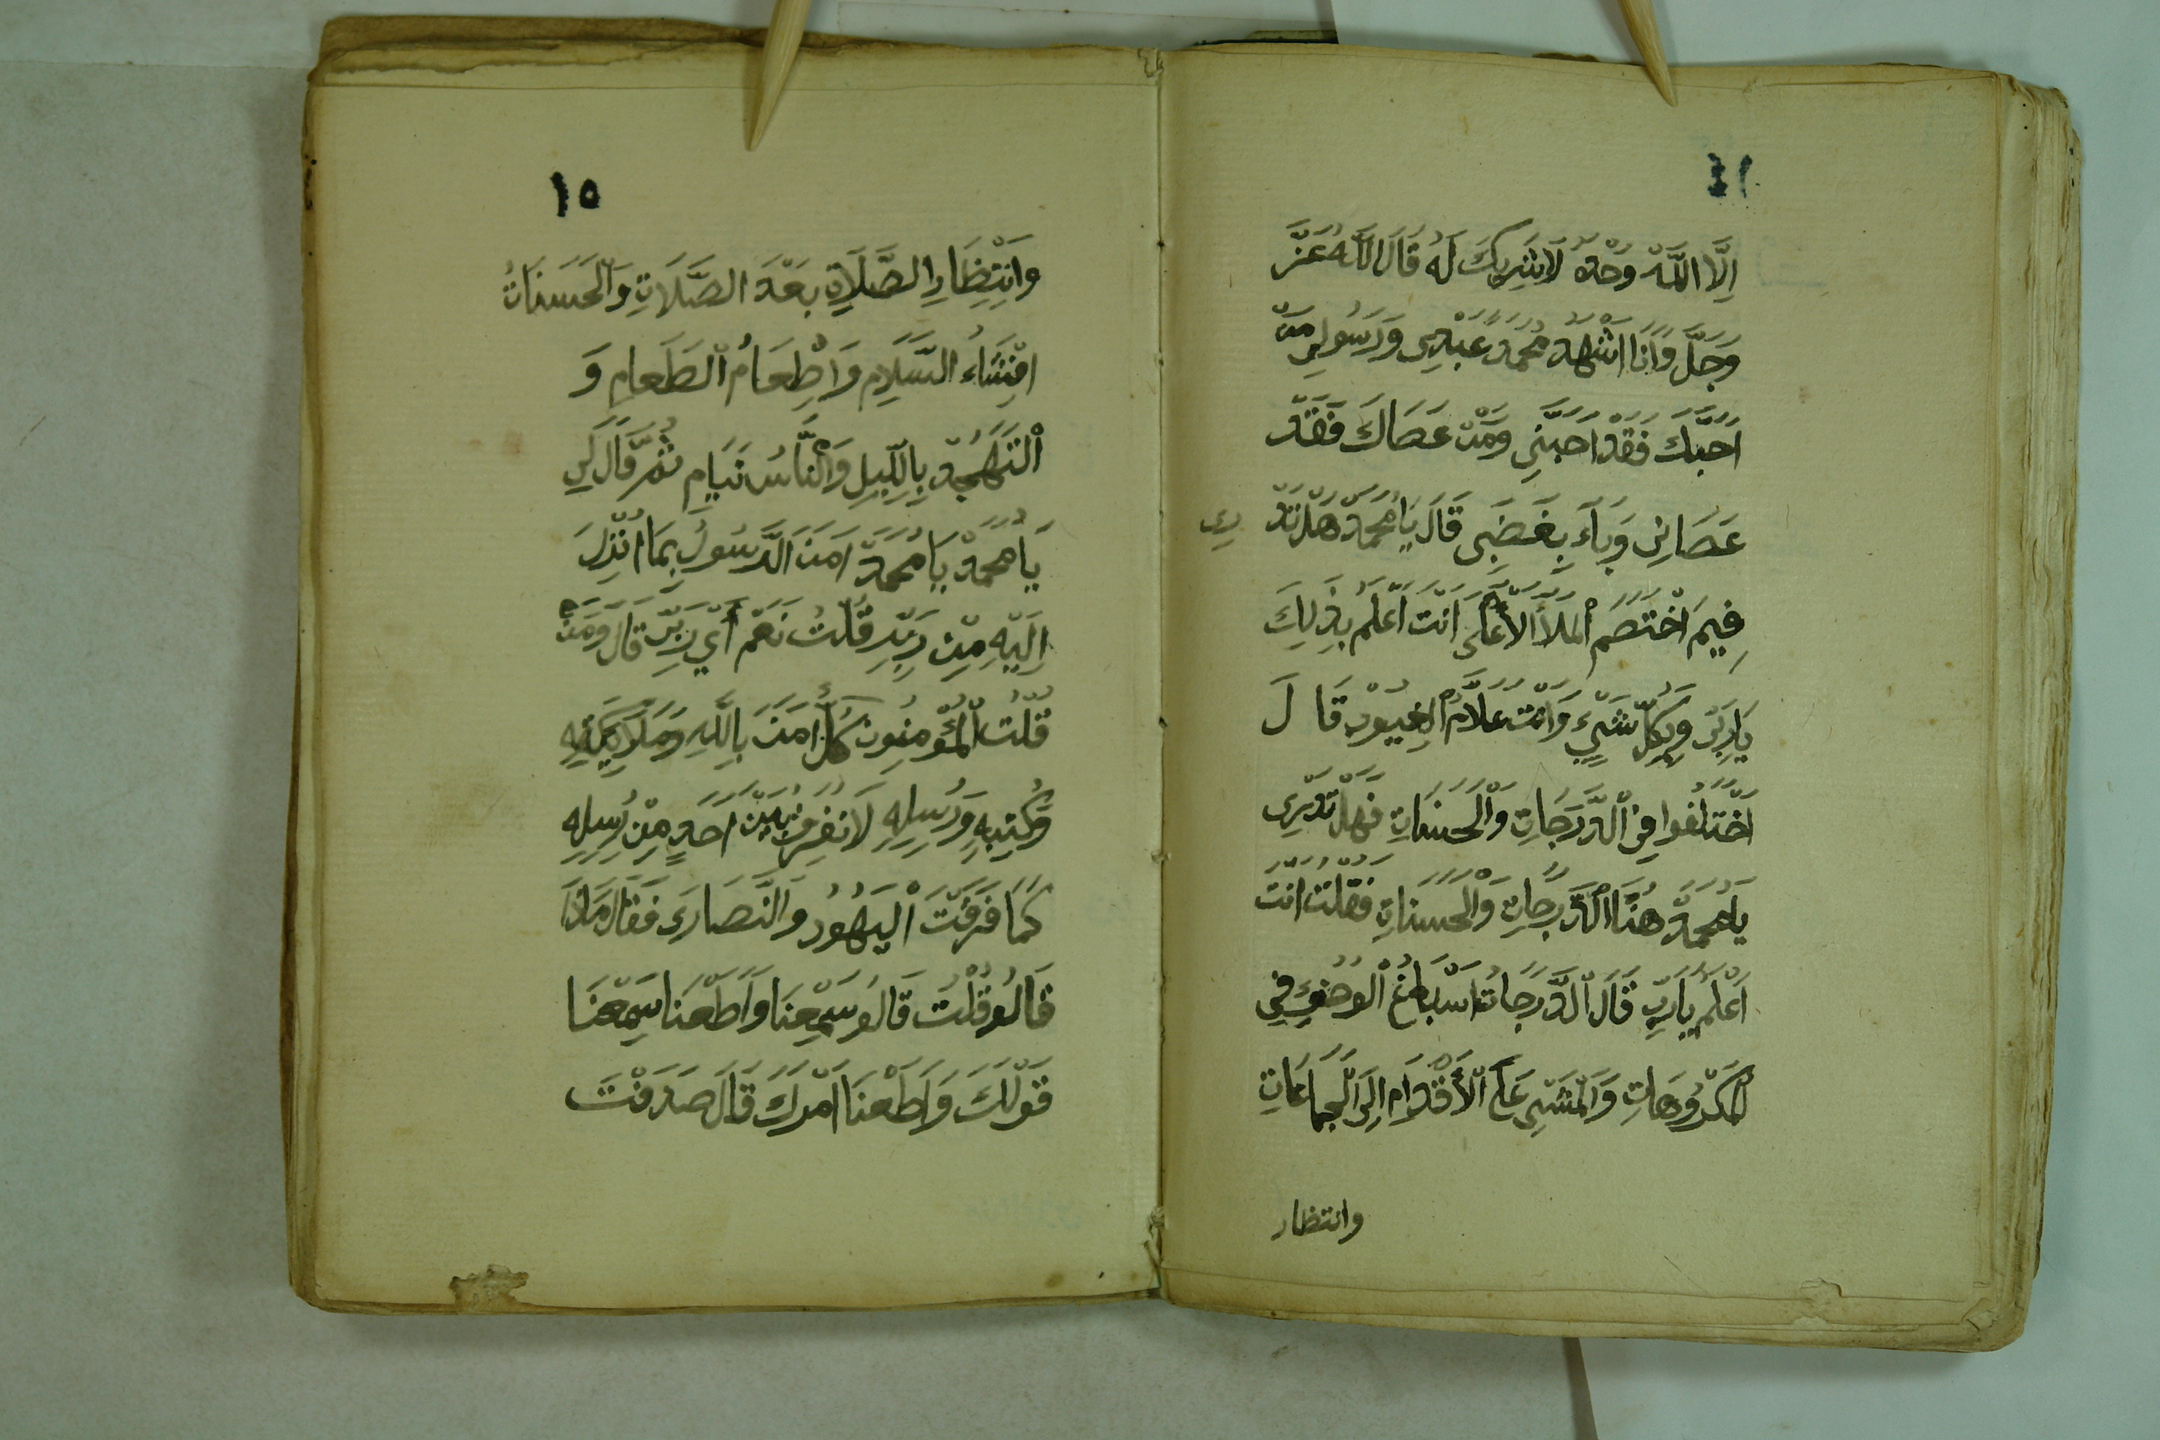 ١٤
اِلَّا اللَّهُ وَحْدَهُ لَاشَرِيكَ لَهُ قَالَ اللَّهُ عَزَّ
وَجَلَّ وَاَنَا اَشْهَدُ مُحَمَّدُ عَبْدِى وَرَسُولِى مَنْ
اَحَبَّكَ فَقَدْ اَحَبَّنِي وَمَنْ عَصَاكَ فَقَدْ
عَصَانِى وَبَآءَ بِغَضَبِى قَالَ يَامُحَمَّدْ هَلْ تَدْرِى
فِيمَ اخْتَصَمَ الْمَلَأُ الْأَعْلَى اَنْتَ اَعْلَمُ بِذَلِكَ
يَارَبِّ وَبِكُلِّ شَيْءٍ وَاَنْتَ عَلَّامُ الْغُيُوبِ قَالَ
اخْتَلَفُوا فِى الدَّرَجَاتِ وَالْحَسَنَاتِ فَهَلْ تَدْرِى
يَامُحَمَّدْ هَنَا الدَّرَجَاتِ وَالْحَسَنَاتِ فَقُلْتُ اَنْتَ
اَعْلَمُ يَارَبِّ قَالَ الدَّرَجَاتُ اسْبَاغُ الْوُضُوءِ فِي
الْمَكْرُوهَاتِ وَالْمَشْىِ عَلَى الْأَقْدَامِ اِلَى الْجَمَاعَاتِ
وانتظار
١٥
وَانْتِظَارِ الصَّلَاةِ بَعْدَ الصَّلَاةِ وَالْحَسَنَاتُ
اِفْشَاءُ السَّلَامِ وَاِطْعَامُ الطَّعَامِ وَ
التَهَجُّدْ بِاللَّيْلِ وَالنَّاسُ نِيَامٍ ثُمَّ قَالَ لِي
يَامُحَمَّدْ يَامُحَمَّدْ اَمَنَ الرَّسُولُ بِمَا اُنْزِلَ
اِلَيْهِ مِنْ رَبِّهِ قُلْتُ نَعَمْ اَيْ رَبِّ قَالَ وَمَنْ
قُلْتُ الْمُؤْمِنُونَ كُلٌّ اَمَنَ بِاللَّهِ وَمَلَائِكَتِهِ
وَكُتُبِهِ وَرُسُلِهِ لَا نُفَرِّقُ بَيْنَ اَحَدٍ مِنْ رُسُلِهِ
كَمَا فَرَّقَتْ الْيَهُودُ وَالنَّصَارَى فَقَالَ مَاذَا
قَالُو قُلْتُ قَالُو سَمِعْنَا وَاَطَعْنَا سَمِعْنَا
قَوْلَكَ وَاَطَعْنَا اَمْرَكَ قَالَ صَدَقْتَ